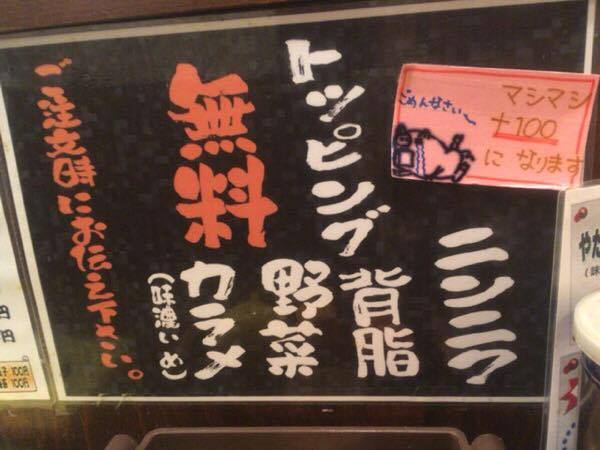 トッピング
無料
ニンニク
背脂
野菜
カラメ
(味濃いめ)
ご注文時にお伝え下さい。
ごめんなさい〜
マシマシ
+100
になります
円
円
100円
100円
やた
(味